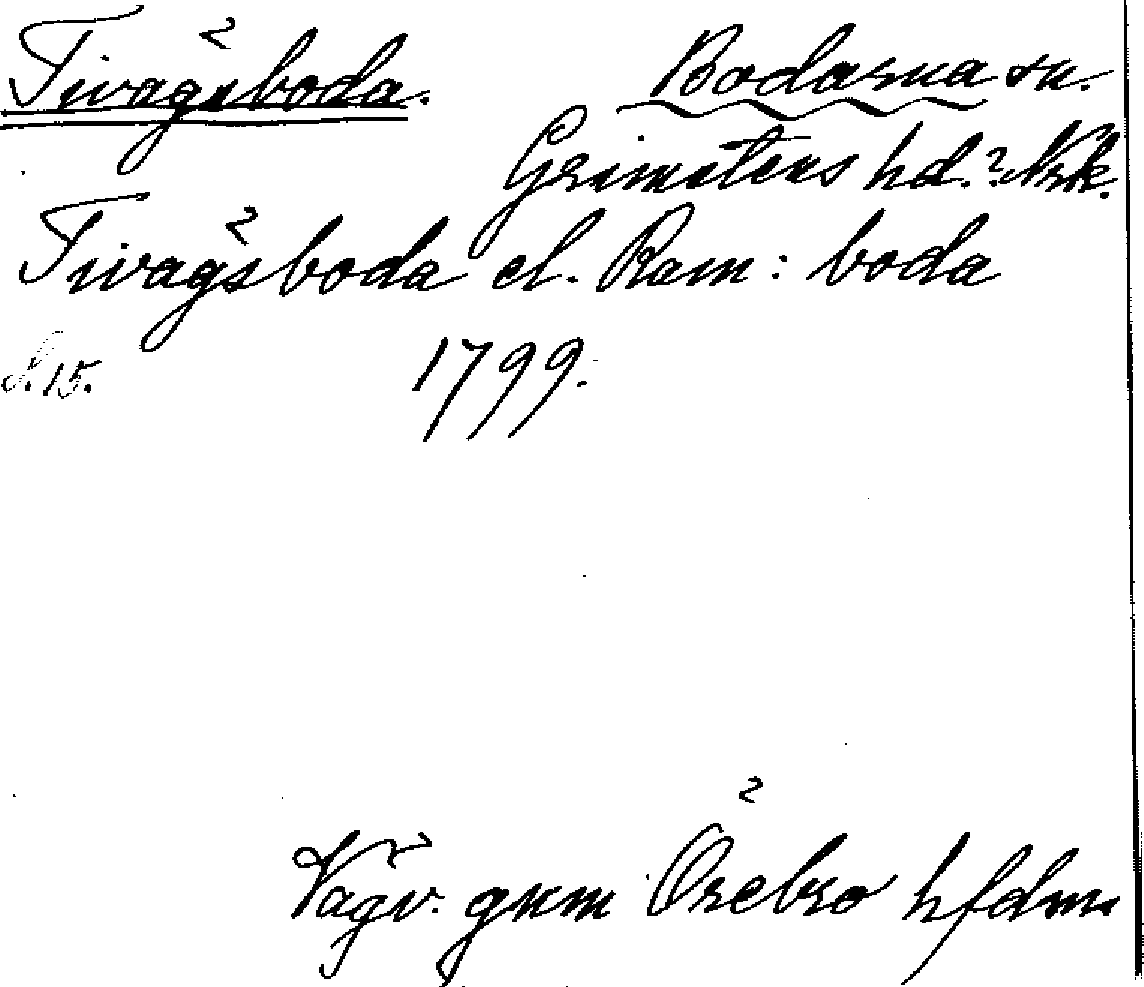 Tivagsboda. Bodarna sn.
Grimstens hd. Nrk.
Tivagsboda el. Ram: boda
S. 15. 1799.
Vägv. gnm Örebro hfdm